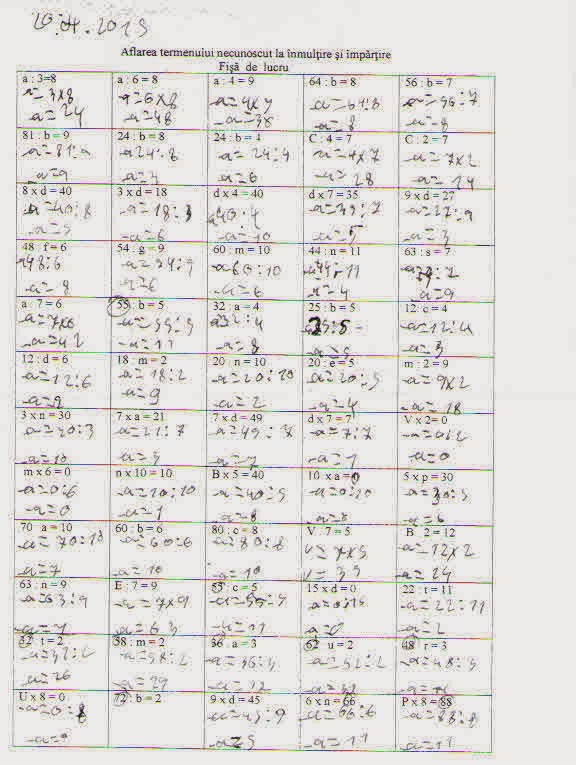 Aflarea termenului necunoscut la înmulţire şi împărţire
Fişă de lucru
a : 3=8 a : 6 = 8 a : 4 = 9 64 : b = 8 56 : b = 7
a=3x8 a=6x8 a=4x9 a=64:8 a=56:7
a=24 a=48 a=38 a=8 a=8
81 : b = 9 24 : b = 8 24 : b = 4 C : 4 = 7 C : 2 = 7
a=81:9 a24:8 a=24:4 a=4x7 a=7x2
a=9 a=3 a=6 28 a=14
8 x d = 40 3 x d = 18 d x 4 = 40 d x 7 = 35 9 x d = 27
a=40:8 a=18:3 a40:4 a=35:7 a=27:9
a=5 a=6 a=10 a=5 a=3
48 : f = 6 54 : g = 9 60 : m = 10 44 : n = 11 63 : s = 7
a48:6 a=54:9 a60:10 a44:11
a=8 a=6 a=6 a=4 a=9
a : 7 = 6 55 : b = 5 32 : a = 4 25 : b = 5 12 : c = 4
a=7x6 a=55:5 a=12:4
a=42 a=11 a=8 a=5 a=3
12 : d = 6 18 : m = 2 20 : n = 10 20 : e = 5 m : 2 = 9
a=12:6 a=18:2 a=20:10 a=20:5 a=9x2
a=2 a=9 a=2 a=4 a=18
3 x n = 30 7 x a = 21 7 x d = 49 d x 7 = 7 V x 2 = 0
a=30:3 a=21:7 a=49:7 a=7:7
a=10 a=3 a=7 a=1 a=0
m x 6 = 0 n x 10 = 10 B x 5 = 40 10 x a = 0 5 x p = 30
a=0:6 a=10:10 a=40:5 a=0:10 a=30:5
a=0 a=1 a=8 a=6
70 a = 10 60 : b = 6 80 : c = 8 V 7 = 5 B 2 = 12
a=70:10 a=60:6 a=80:8 V=7x5 a=12x2
a=7 a=10 a=10 V=35 a=24
63 : n = 9 E : 7 = 9 55 : c = 5 15 x d = 0 22 : r = 11
a=63:9 a=7x9 a=55:5 a=0:15 a=22:11
a=7 a=63 a=11 a=0 a=2
32 : t = 2 58 : m = 2 36 : a = 3 62 u = 2 48 : r = 3
a=58:2 a=36:3 a=48:3
a=26 a=29 a=12
U x 8 = 0 72 : b = 2 9 x d = 45 6 x n = 66 P x 8 = 88
a=0:8 a=45:9 a=66:6 a=88:8
a=5 a=11 a=11